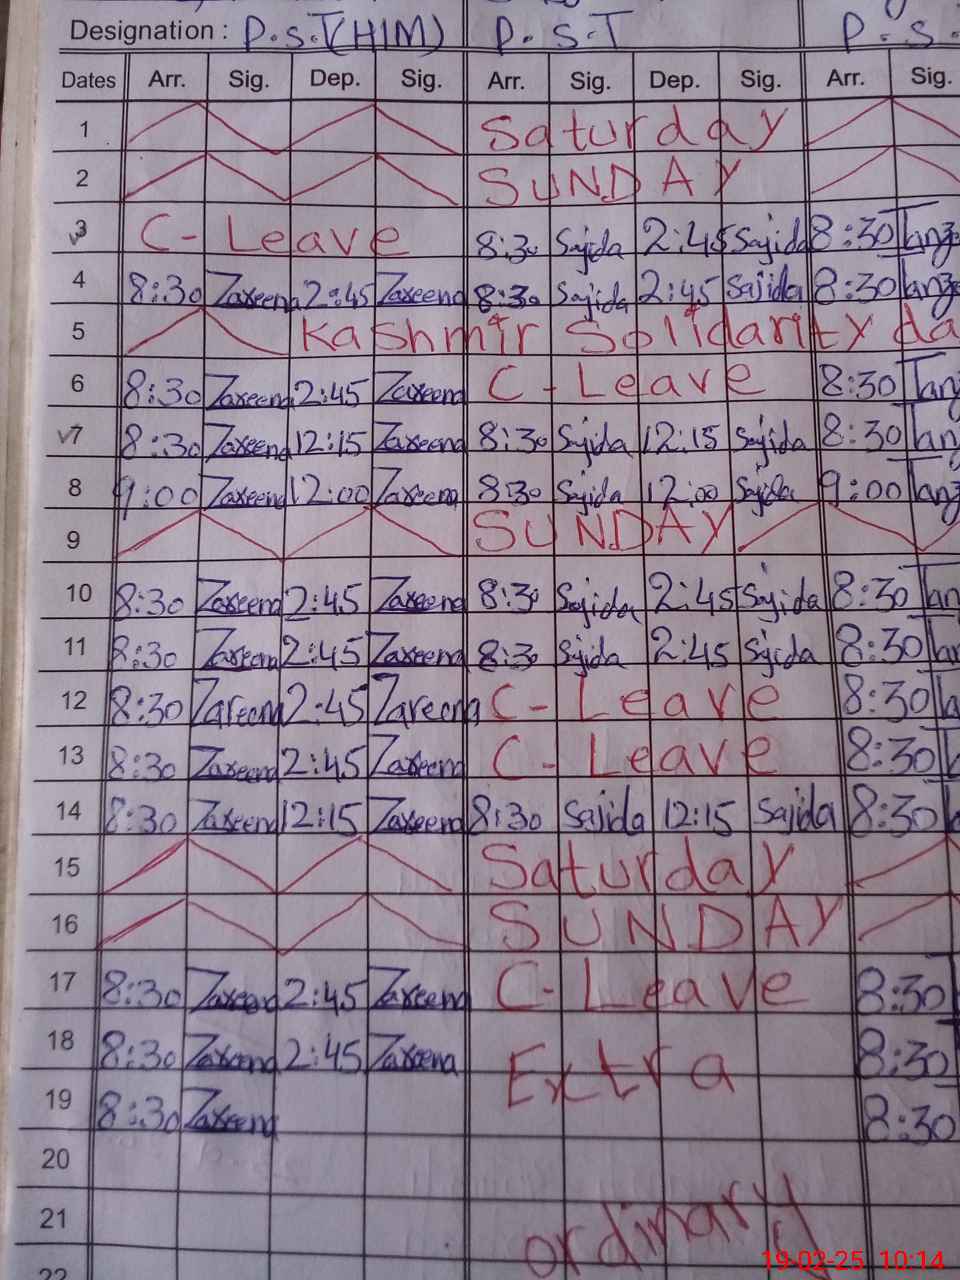 Designation : P.S.T(H|M) P.S.T P.S.
Dates Arr. Sig. Dep. Sig. Arr. Sig. Dep. Sig. Arr. Sig.
1 Saturday
2 SUNDAY
3 C-Leave 8:30 Sajida 2:45 Sajida 8:30
4 8:30 Zareena 2:45 Zareena 8:30 Sajida 2:45 Sajida 8:30
5 Kashmir Solidarity da
6 8:30 Zareena 2:45 Zareena C-Leave 8:30
7 8:30 Zareena 12:15 Zareena 8:30 Sajida 12:15 Sajida 8:30
8 9:00 Zareena 12:00 Zareena 8:30 Sajida 12:00 Sajida 9:00
9 SUNDAY
10 8:30 Zareena 2:45 Zareena 8:30 Sajida 2:45 Sajida 8:30
11 8:30 Zareena 2:45 Zareena 8:30 Sajida 2:45 Sajida 8:30
12 8:30 Zareena 2:45 Zareena C-Leave 8:30
13 8:30 Zareena 2:45 Zareena C-Leave 8:30
14 8:30 Zareena 12:15 Zareena 8:30 Sajida 12:15 Sajida 8:30
15 Saturday
16 SUNDAY
17 8:30 Zareena 2:45 Zareena C-Leave 8:30
18 8:30 Zareena 2:45 Zareena Extra 8:30
19 8:30 Zareena 8:30
20
21 ordinary
22
19-02-25 10:14